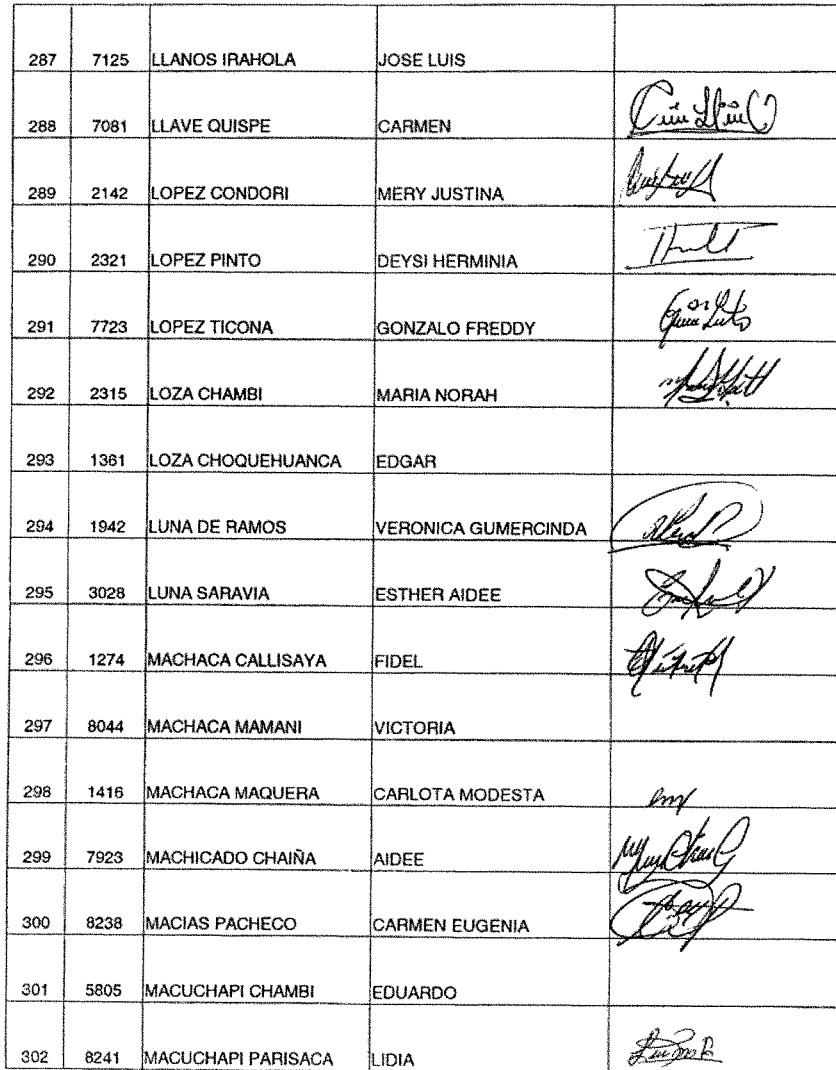 287 7125 LLANOS IRAHOLA JOSE LUIS
288 7081 LLAVE QUISPE CARMEN
289 2142 LOPEZ CONDORI MERY JUSTINA
290 2321 LOPEZ PINTO DEYSI HERMINIA
291 7723 LOPEZ TICONA GONZALO FREDDY
292 2315 LOZA CHAMBI MARIA NORAH
293 1361 LOZA CHOQUEHUANCA EDGAR
294 1942 LUNA DE RAMOS VERONICA GUMERCINDA
295 3028 LUNA SARAVIA ESTHER AIDEE
296 1274 MACHACA CALLISAYA FIDEL
297 8044 MACHACA MAMANI VICTORIA
298 1416 MACHACA MAQUERA CARLOTA MODESTA
299 7923 MACHICADO CHAIÑA AIDEE
300 8238 MACIAS PACHECO CARMEN EUGENIA
301 5805 MACUCHAPI CHAMBI EDUARDO
302 8241 MACUCHAPI PARISACA LIDIA